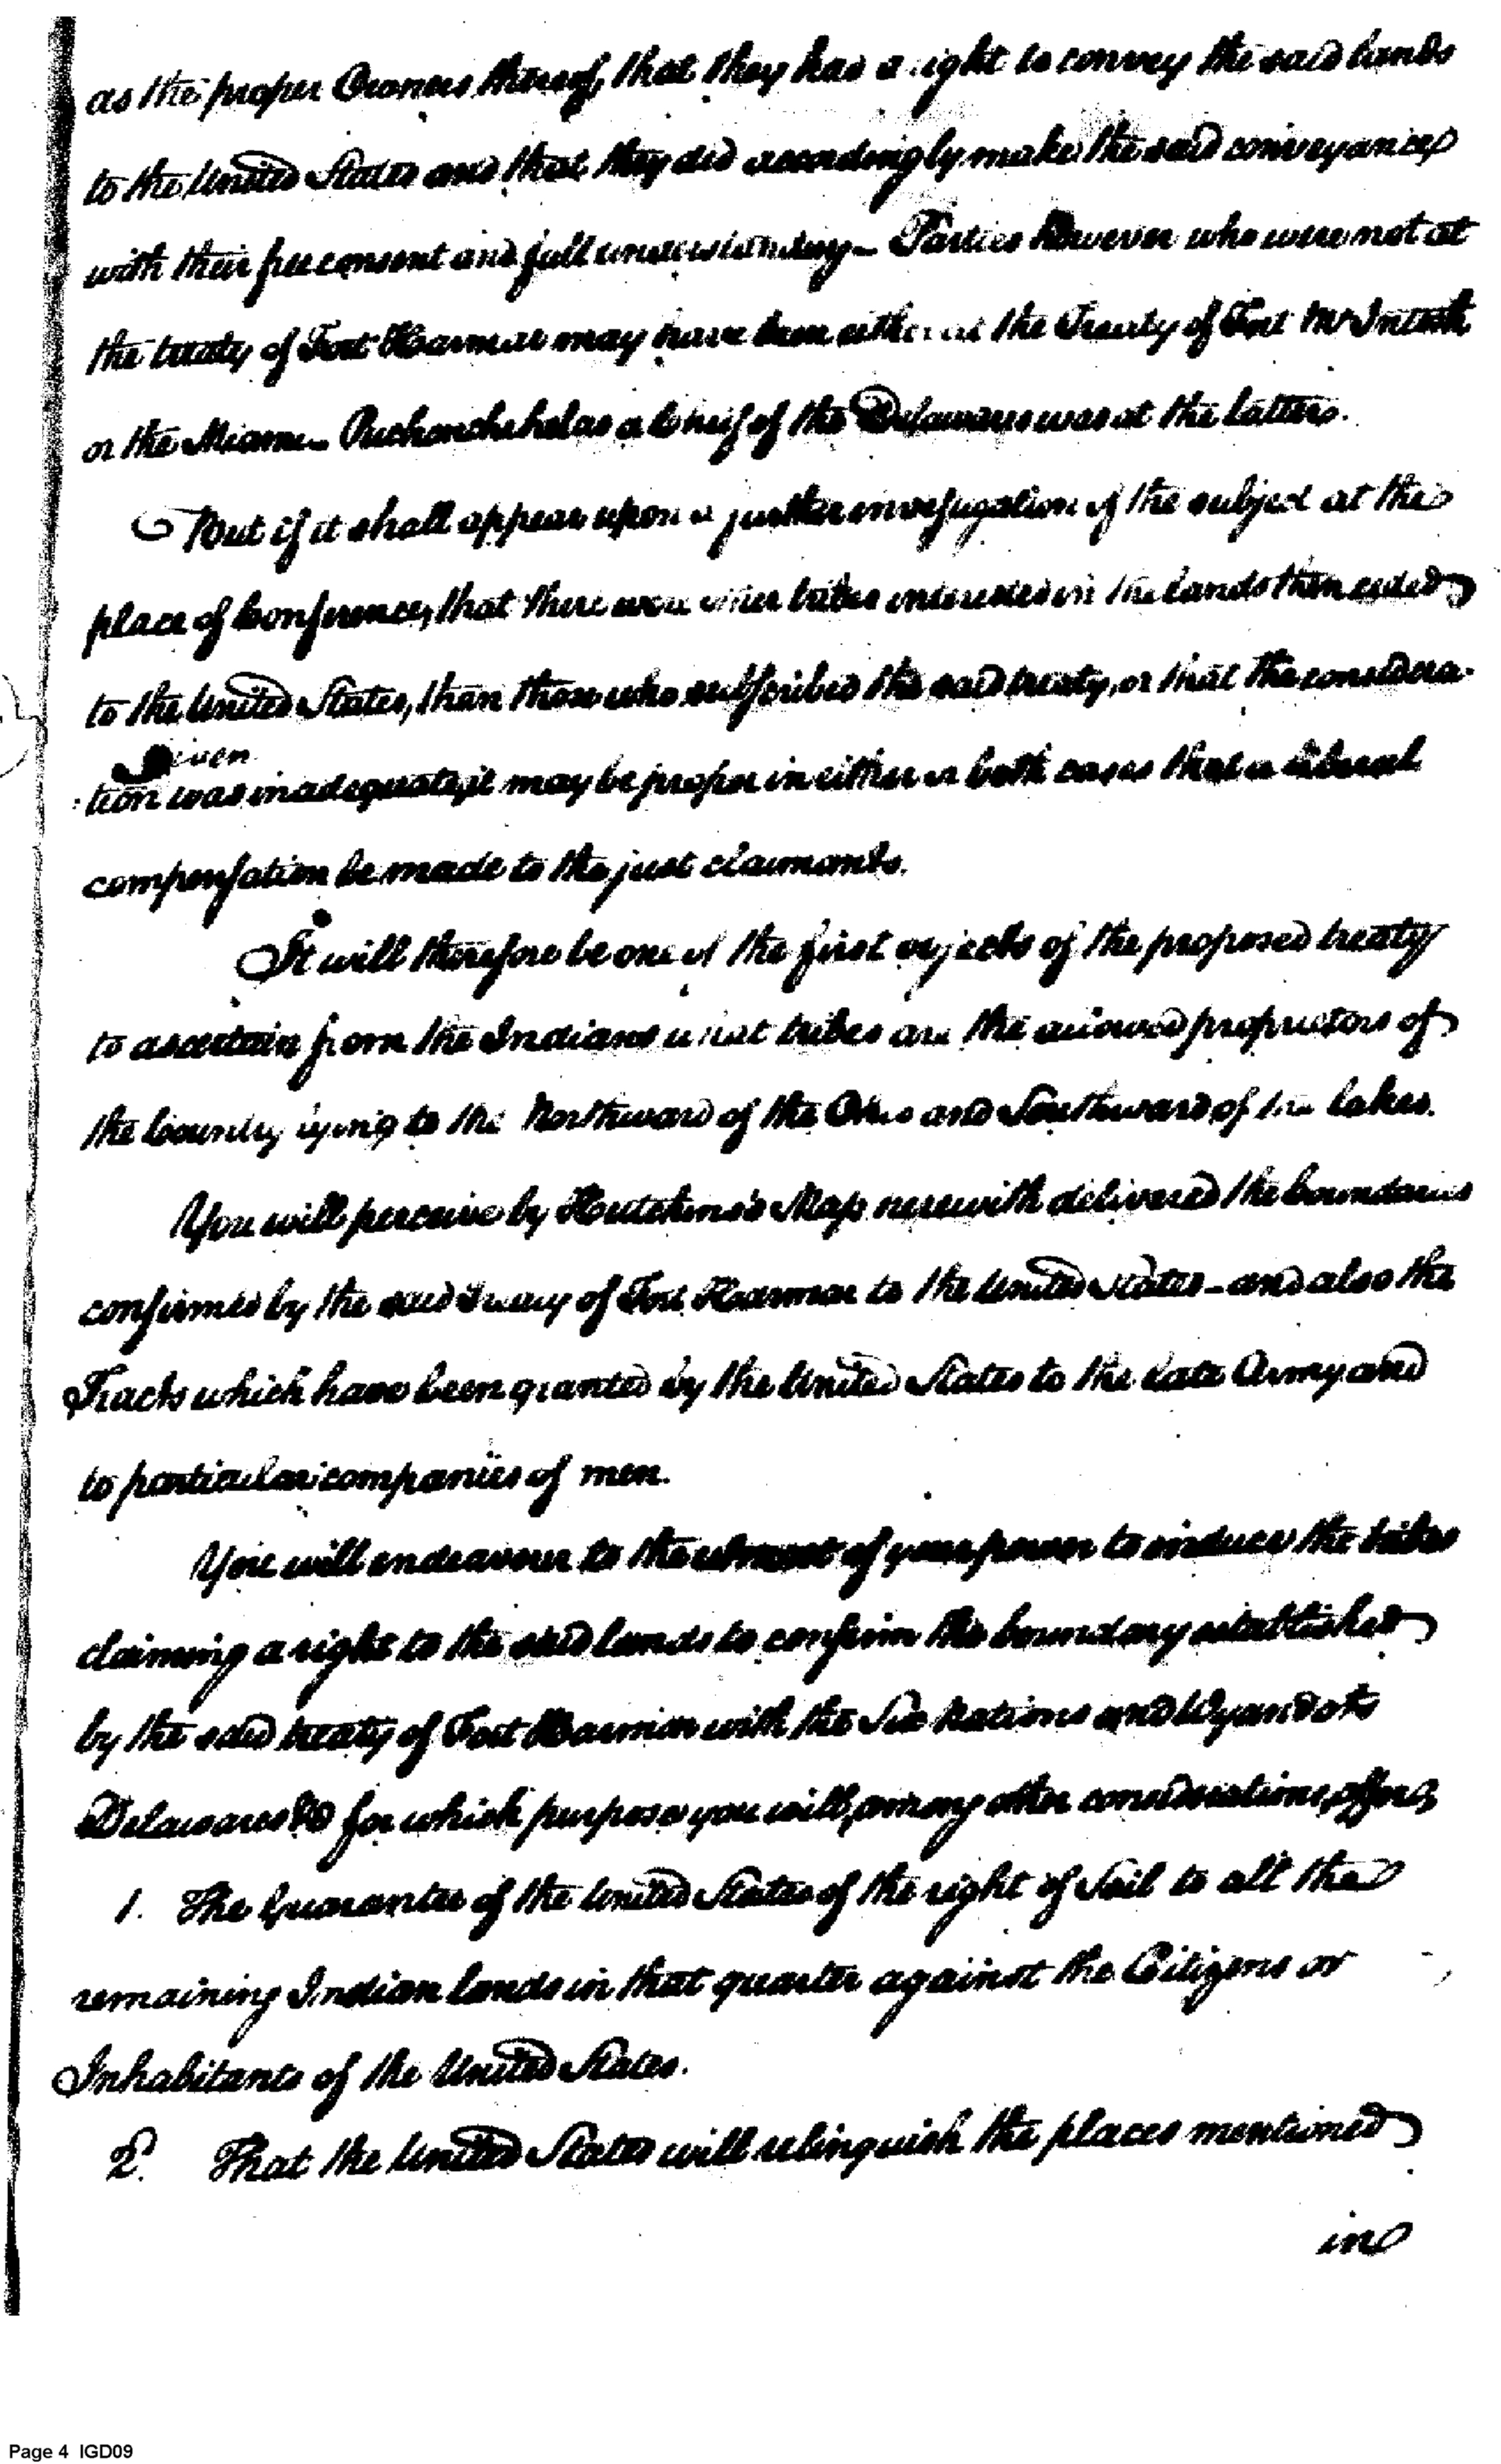 as the proper Owners thereof, that they had a right to convey the said lands
to the United States and that they did accordingly make the said conveyance
with their free consent and full understanding – Parties however who were not at
the treaty of Fort Harmar may have been either at the Treaty of Fort McIntosh
or the Miami – a Chief of the Delawares was at the latter.
But if it shall appear upon a further investigation of the subject at the
place of Conference, that there were other tribes interested in the lands then ceded
to the United States, than those who subscribed the said treaty, or that the considera-
given
tion was inadequate, it may be proper in either or both cases that a liberal
compensation be made to the just claimants.
It will therefore be one of the first objects of the proposed treaty
to ascertain from the Indians what tribes are the allowed proprietors of
the Country lying to the Northward of the Ohio and Southward of the lakes.
You will perceive by Hutchins's Map herewith delivered the boundaries
confirmed by the said Treaty of Fort Harmar to the United States – and also the
Tracts which have been granted by the United States to the late Army and
to particular companies of men.
You will endeavour to the utmost of your power to induce the tribes
claiming a right to the said lands to confirm the boundary established
by the said treaty of Fort Harmar with the Six Nations and Wyandots
Delawares &c for which purpose you will, among other considerations, offer,
1. The Guarantee of the United States of the right of Soil to all the
remaining Indian lands in that quarter against the Citizens or
Inhabitants of the United States.
2. That the United States will relinquish the places mentioned
in
Page 4 IGD09